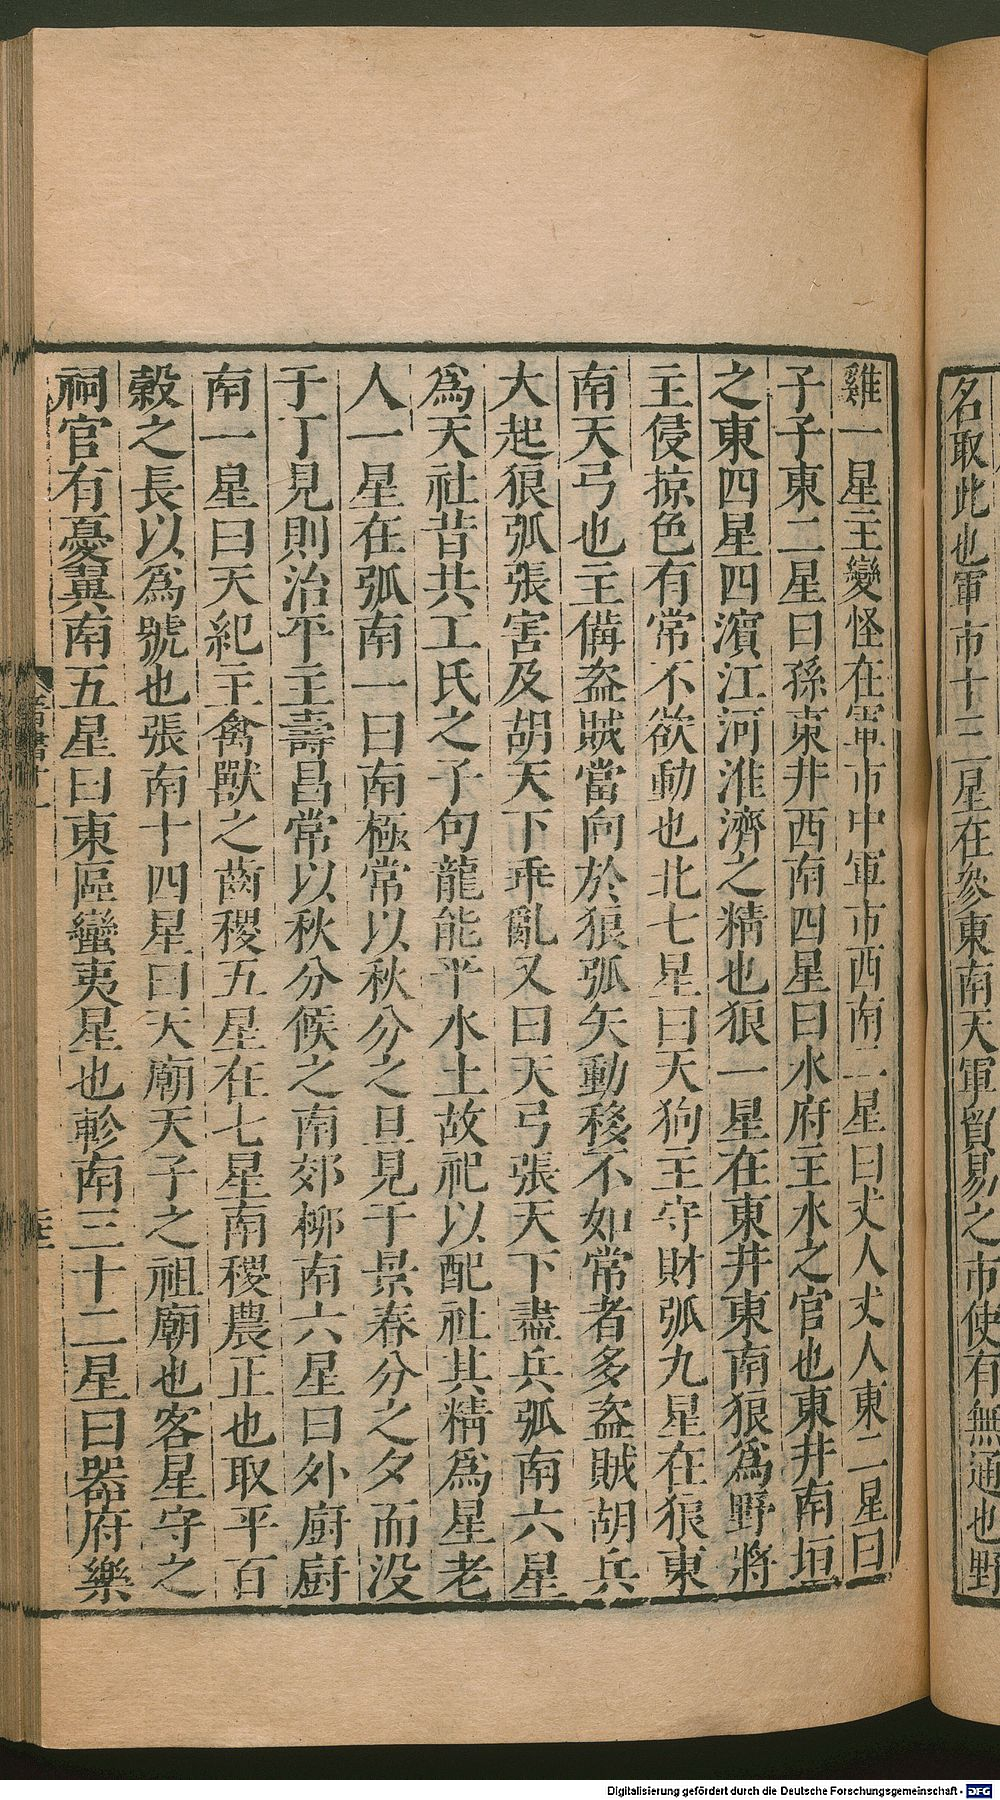 名取此也軍市十三星在參東南天軍貿易之市使有無通也野
雞一星主變怪在軍市中軍市西南二星曰丈人丈人東二星曰
子子東二星曰孫東井西南四星曰水府主水之官也東井南垣
之東四星四瀆江河淮濟之精也狼一星在東井東南狼爲野將
主侵掠色有常不欲動也北七星曰天狗主守財弧九星在狼東
南天弓也主備盜賊當向於狼弧矢動移不如常者多盜賊胡兵
大起狼弧張害及胡天下乖亂又曰天弓張天下盡兵弧南六星
爲天社昔共工氏之子句龍能平水土故祀以配社其精爲星老
人一星在弧南一曰南極常以秋分之旦見于景春分之夕而没
于丁見則治平主壽昌常以秋分候之南郊柳南六星曰外厨厨
南一星曰天紀主禽獸之齒稷五星在七星南稷農正也取平百
榖之長以爲號也張南十四星曰天廟天子之祖廟也客星守之
祠官有憂翼南五星曰東區蠻夷星也軫南三十二星曰器府樂
晋書十一
Digitalisierung gefördert durch die Deutsche Forschungsgemeinschaft - DFG